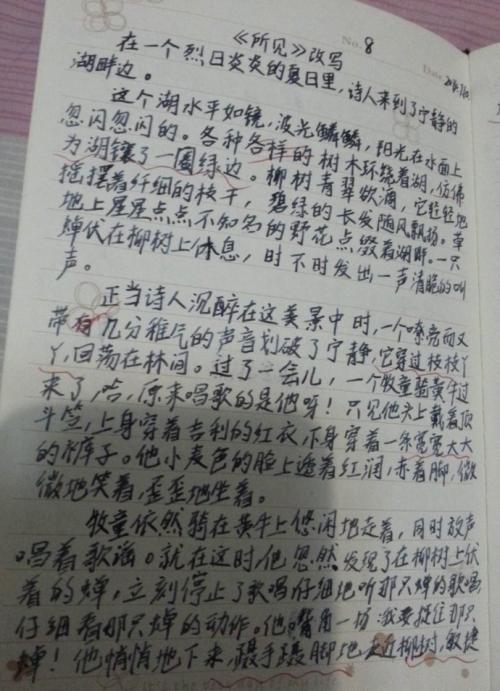 《所见》改写
No. 8
Date
在一个烈日炎炎的夏日里，诗人来到了宁静的
湖畔边。
这个湖水平如镜，波光鳞鳞，阳光在水面上
忽闪忽闪的。各种各样的树木环绕着湖，仿佛
为湖镶了一圈绿边。柳树青翠欲滴，它轻轻地
摇摆着纤细的枝干，碧绿的长发随风飘扬。草
地上星星点点不知名的野花点缀着湖畔。一只
蝉伏在柳树上休息，时不时发出一声清脆的叫
声。
正当诗人沉醉在这美景中时，一个嘹亮而又
带有几分稚气的声音划破了宁静，它穿过枝枝丫
丫，回荡在林间。过了一会儿，一个牧童骑黄牛过
来了，哈，原来唱歌的是他呀！只见他头上戴着顶
斗笠，上身穿着吉利的红衣，下身穿着一条宽宽大大
的裤子。他小麦色的脸上透着红润，赤着脚，微
微地笑着，歪歪地坐着。
牧童依然骑在黄牛上悠闲地走着，同时放声
唱着歌谣。就在这时，他忽然发现了在柳树上伏
着的蝉，立刻停止了歌唱仔细地听那只蝉的歌唱，
仔细看那只蝉的动作。他嘴角一扬：我要捉住那只
蝉！他悄悄地下来，蹑手蹑脚地走近柳树，敏捷